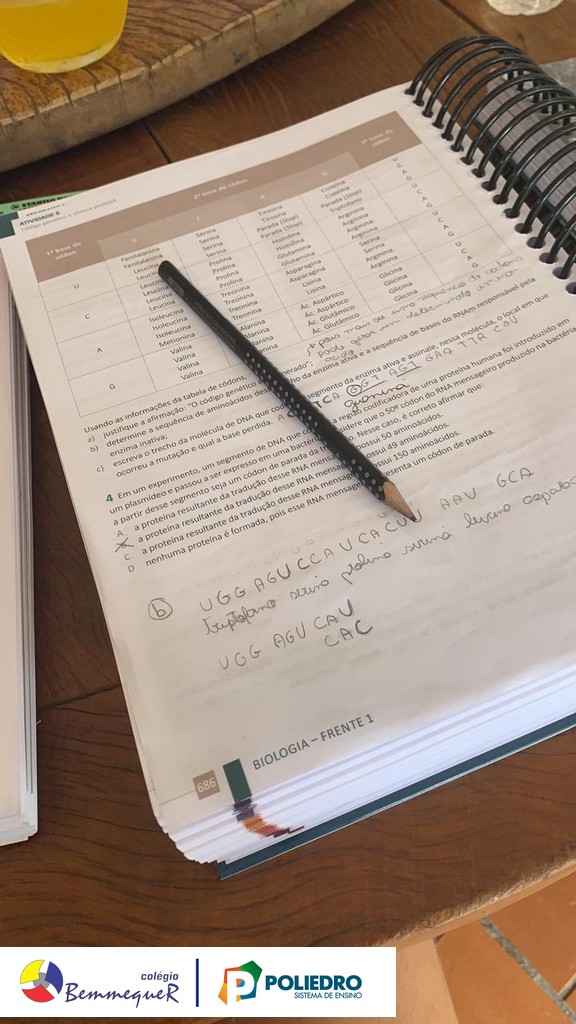 ATIVIDADE 6
Código genético e síntese proteica
1ª base do códon
2ª base do códon
3ª base do códon
U C A G
U
Fenilalanina Serina Tirosina Cisteína U
Fenilalanina Serina Tirosina Cisteína C
Leucina Serina Parada (Stop) Parada (Stop) A
Serina Parada (Stop) Triptofano G
C
Leucina Prolina Histidina Arginina U
Leucina Prolina Histidina Arginina C
Leucina Prolina Glutamina Arginina A
Prolina Glutamina Arginina G
A
Isoleucina Treonina Asparagina Serina U
Isoleucina Treonina Asparagina Serina C
Isoleucina Treonina Lisina Arginina A
Metionina Treonina Lisina Arginina G
G
Valina Alanina Ác. Aspártico Glicina U
Valina Alanina Ác. Aspártico Glicina C
Valina Ác. Glutâmico Glicina A
Valina Ác. Glutâmico Glicina G
mais de uma sequência de códons
pode gerar um determinado amino
ácido
Usando as informações da tabela de códons,
a) justifique a afirmação: "O código genético
b) determine a sequência de aminoácidos des do trecho da enzima ativa e a sequência de bases do RNAm responsável pela
enzima inativa;
c) escreva o trecho da molécula de DNA que co segmento da enzima ativa e assinale, nessa molécula, o local em que
ocorreu a mutação e qual a base perdida.
GGT AGT GAA TTA CGU
guanina
4 Em um experimento, um segmento de DNA que co a região codificadora de uma proteína humana foi introduzido em
um plasmídeo e passou a ser expresso em uma bacté sidere que o 50º códon do RNA mensageiro produzido na bactéria
a partir desse segmento seja um códon de parada da t Nesse caso, é correto afirmar que:
A a proteína resultante da tradução desse RNA mensa possui 50 aminoácidos.
B a proteína resultante da tradução desse RNA mensage possui 49 aminoácidos.
C a proteína resultante da tradução desse RNA mensage possui 150 aminoácidos.
D nenhuma proteína é formada, pois esse RNA mensage presenta um códon de parada.
b UGG AGU CCA UCA CUU AAU GCA
triptofano serina prolina serina leucina
UGG AGU CAU
CAC
686
BIOLOGIA – FRENTE 1
colégio
BemmequeR
POLIEDRO
SISTEMA DE ENSINO